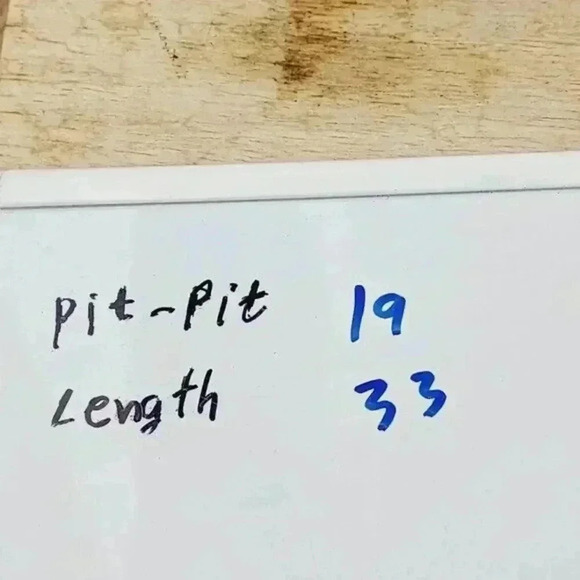 Pit-Pit 19
Length 33